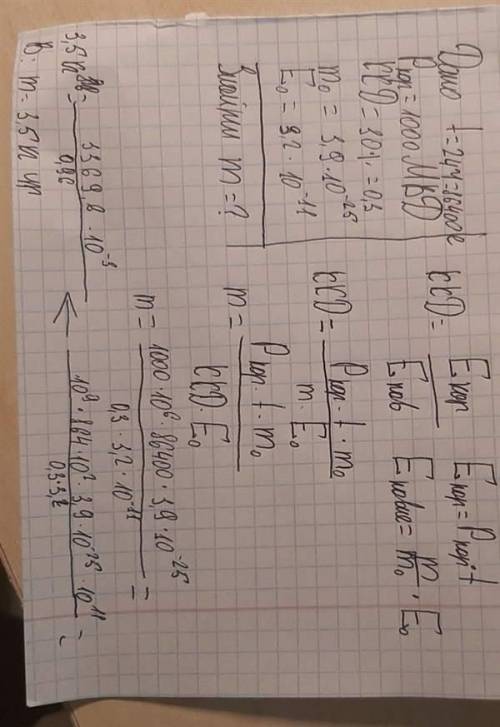 Дано t=24ч=86400с
Pкор=1000 МВт
ККД=30%=0,3
m₀ = 3,9·10⁻²⁵
E₀ = 3,2·10⁻¹¹
Знайти m=?
ККД = Eкор / Eпов
Eкор = Pкор·t
Eповне = m/m₀ · E₀
ККД = Pкор·t·m₀ / m·E₀
m = Pкор·t·m₀ / ККД·E₀
m = 1000·10⁶·86400·3,9·10⁻²⁵ / 0,3·3,2·10⁻¹¹ =
10⁹·864·10²·3,9·10⁻²⁵·10¹¹ / 0,3·3,2 =
3369,8·10⁻³ / 0,96
3,5 кг
В: m=3,5 кг